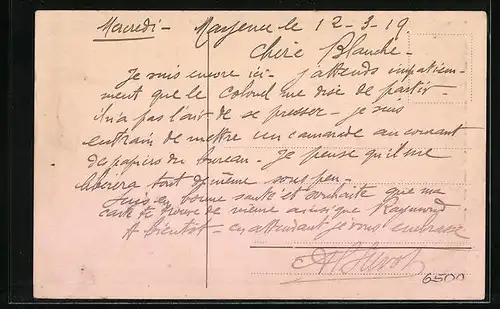 Mercredi - Mayence le 12-3-19.
Chère Blanche -
Je suis encore ici - j'attends impatiem-
ment que le colonel me dise de partir -
il n'a pas l'air de se presser - je suis
entrain de mettre un camarade au courant
des papiers du bureau - Je pense qu'il me
liberera tout de même sous peu -
Suis en bonne santé et souhaite que ma
carte te trouve de même ainsi que Raymond
A bientôt - en attendant je vous embrasse
6500